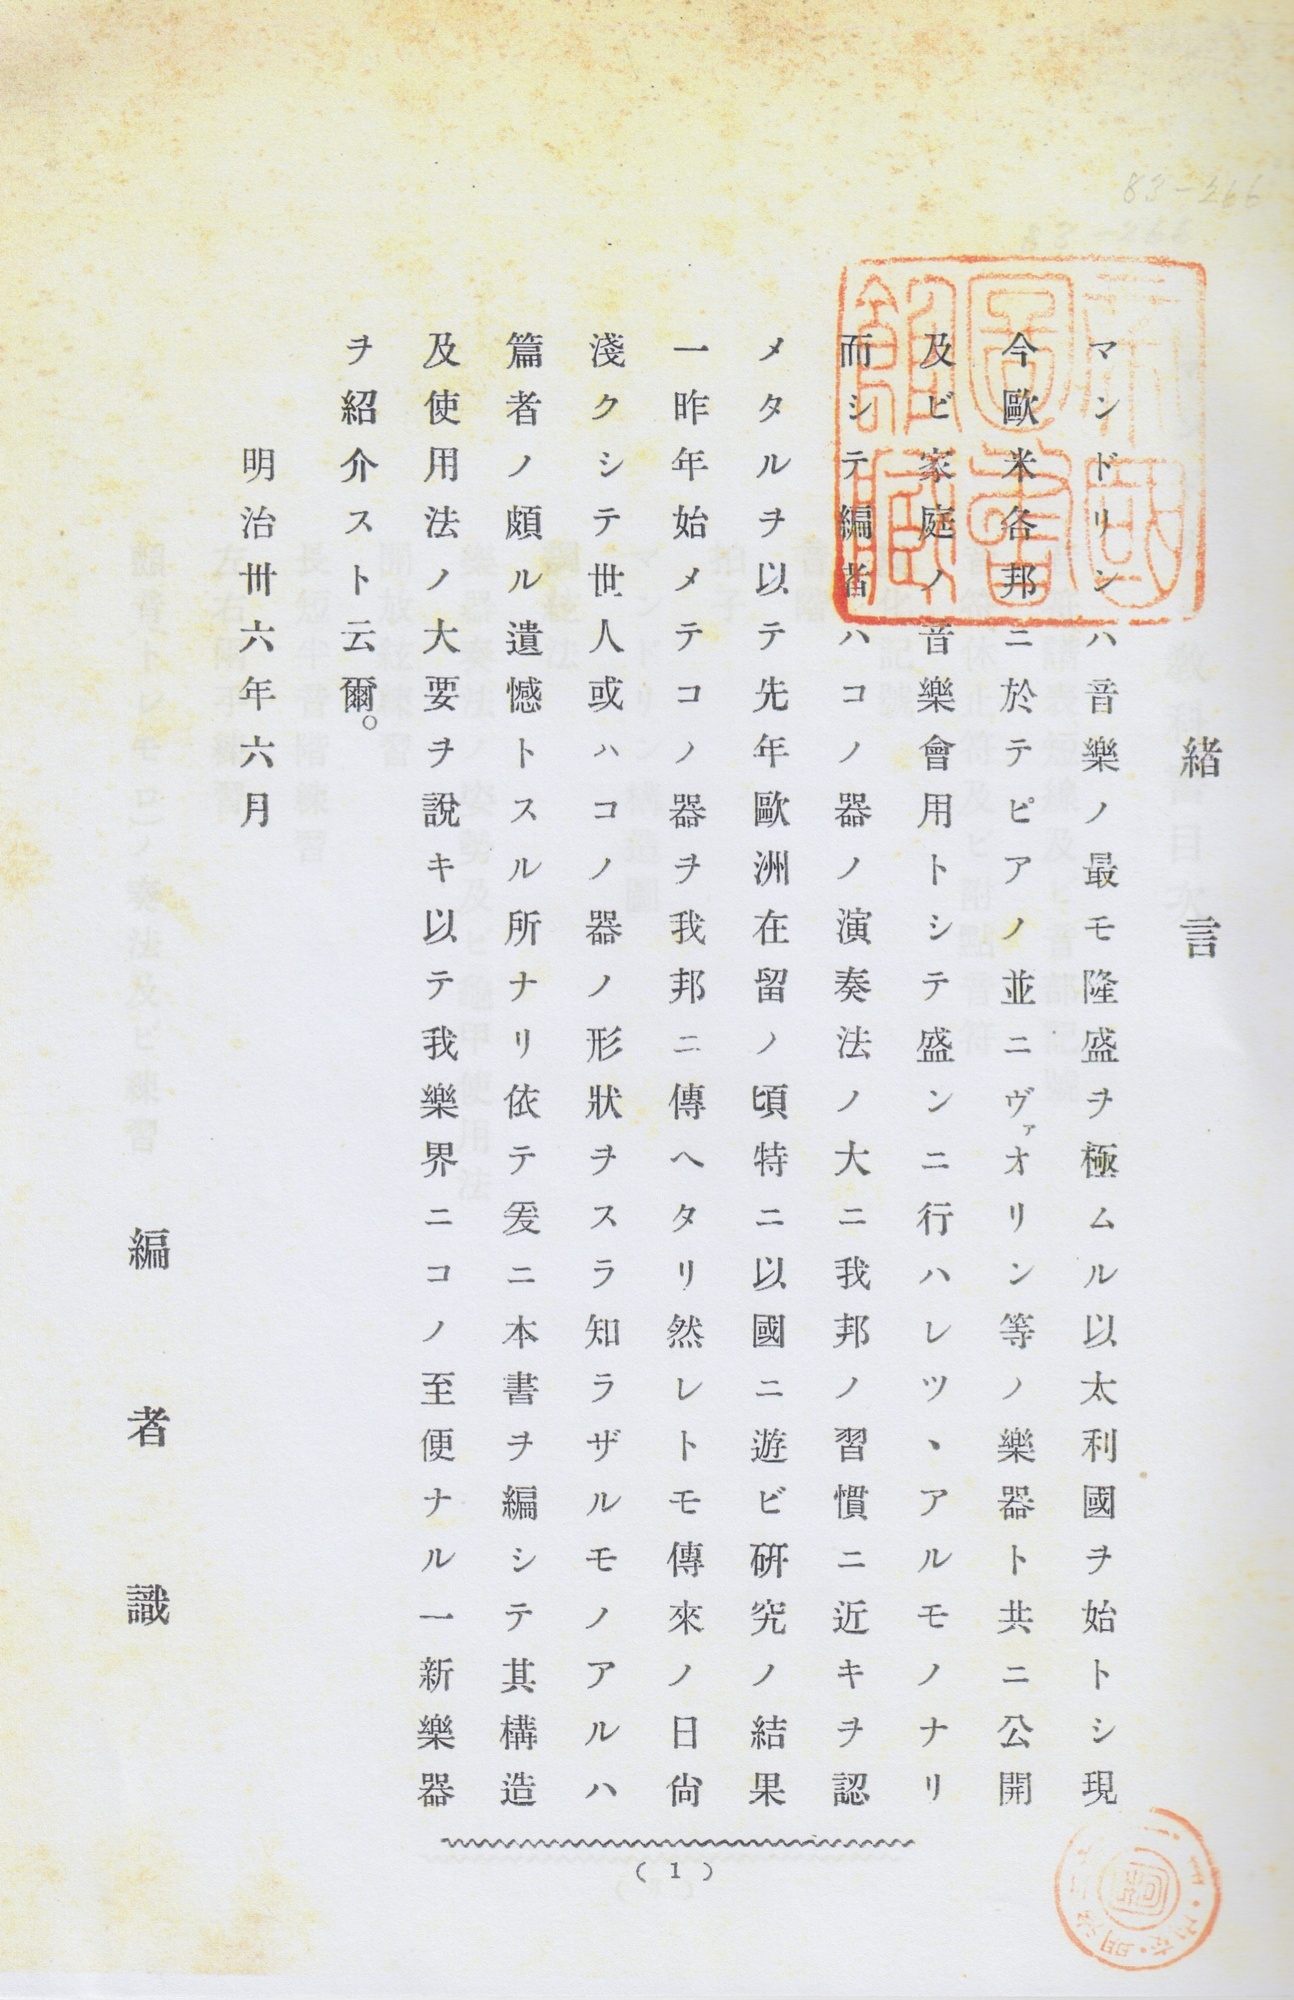 緒言
マンドリンハ音樂ノ最モ隆盛ヲ極ムル以太利國ヲ始トシ現
今歐米各邦ニ於テピアノ並ニヴァオリン等ノ樂器ト共ニ公開
及ビ家庭ノ音樂會用トシテ盛ンニ行ハレツヽアルモノナリ
而シテ編者ハコノ器ノ演奏法ノ大ニ我邦ノ習慣ニ近キヲ認
メタルヲ以テ先年歐洲在留ノ頃特ニ以國ニ遊ビ研究ノ結果
一昨年始メテコノ器ヲ我邦ニ傳ヘタリ然レトモ傳來ノ日尙
淺クシテ世人或ハコノ器ノ形狀ヲスラ知ラザルモノアルハ
篇者ノ頗ル遺憾トスル所ナリ依テ爰ニ本書ヲ編シテ其構造
及使用法ノ大要ヲ說キ以テ我樂界ニコノ至便ナル一新樂器
ヲ紹介スト云爾。
明治卅六年六月
編者識
(1)
帝國
圖書
館藏
83-266